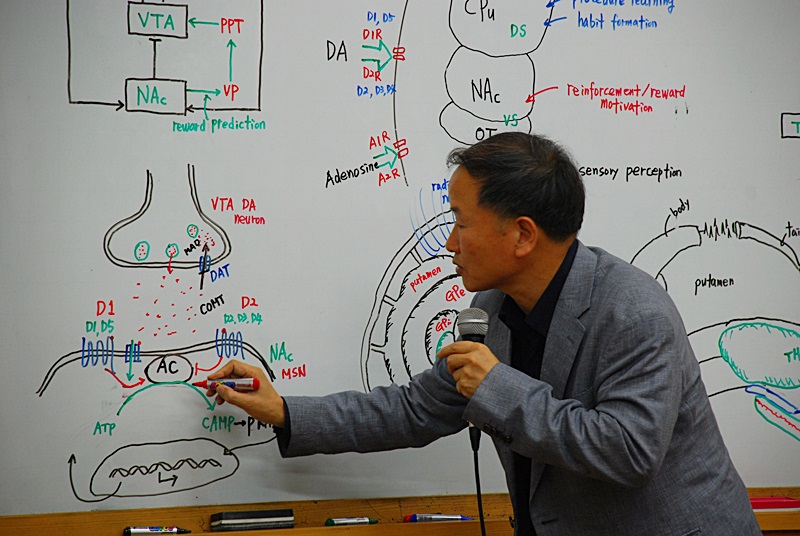 VTA
PPT
NAc
VP
reward prediction
VTA DA
neuron
MAO
DAT
COMT
D1
D1, D5
D2
D2, D3, D4
AC
NAc
MSN
ATP
CAMP→
D1, D5
D1R
DA
D2R
D2, D3, D4
A1R
Adenosine
A2R
CPu
DS
procedure learning
habit formation
NAc
reinforcement/reward
motivation
VS
OT
sensory perception
putamen
GPe
GPi
body
tail
putamen
TH
T